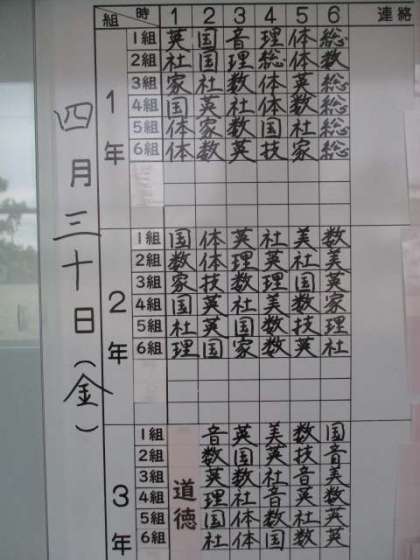 四月三十日(金)
組 時 1 2 3 4 5 6 連絡
1年
1組 英 国 音 理 体 総
2組 社 国 理 総 体 数
3組 家 社 数 体 英 総
4組 国 英 社 体 数 総
5組 体 家 数 国 社 総
6組 体 数 英 技 家 総
2年
1組 国 体 英 社 美 数
2組 数 体 理 英 社 美
3組 家 技 数 理 国 英
4組 国 英 社 美 数 家
5組 社 英 国 数 技 理
6組 理 国 家 数 英 社
3年
道徳
1組 音 英 美 数 国
2組 数 国 英 技 音
3組 英 数 社 音 美
4組 理 社 音 英 数
5組 国 体 数 社 英
6組 社 体 国 数 英